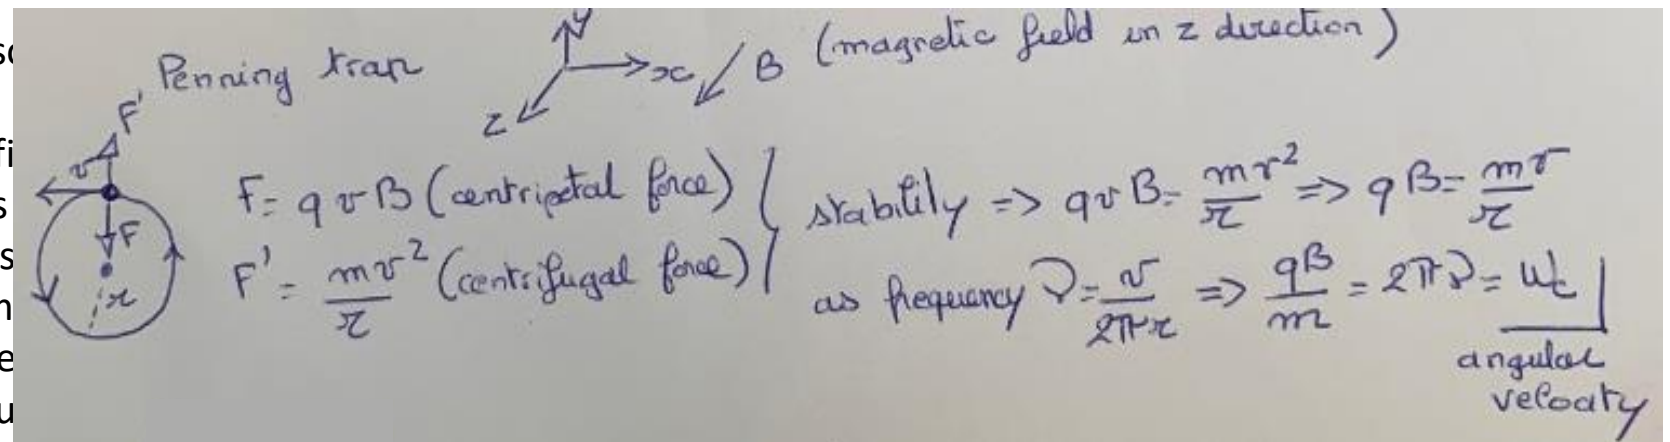 Penning trap
y
x
z
B (magnetic field in z direction)
F'
v
F
r
F = qvB (centripetal force)
F' = mv²/r (centrifugal force)
stability => qvB = mv²/r => qB = mv/r
as frequency ν = v/2πr => qB/m = 2πν = ωc
angular
velocity